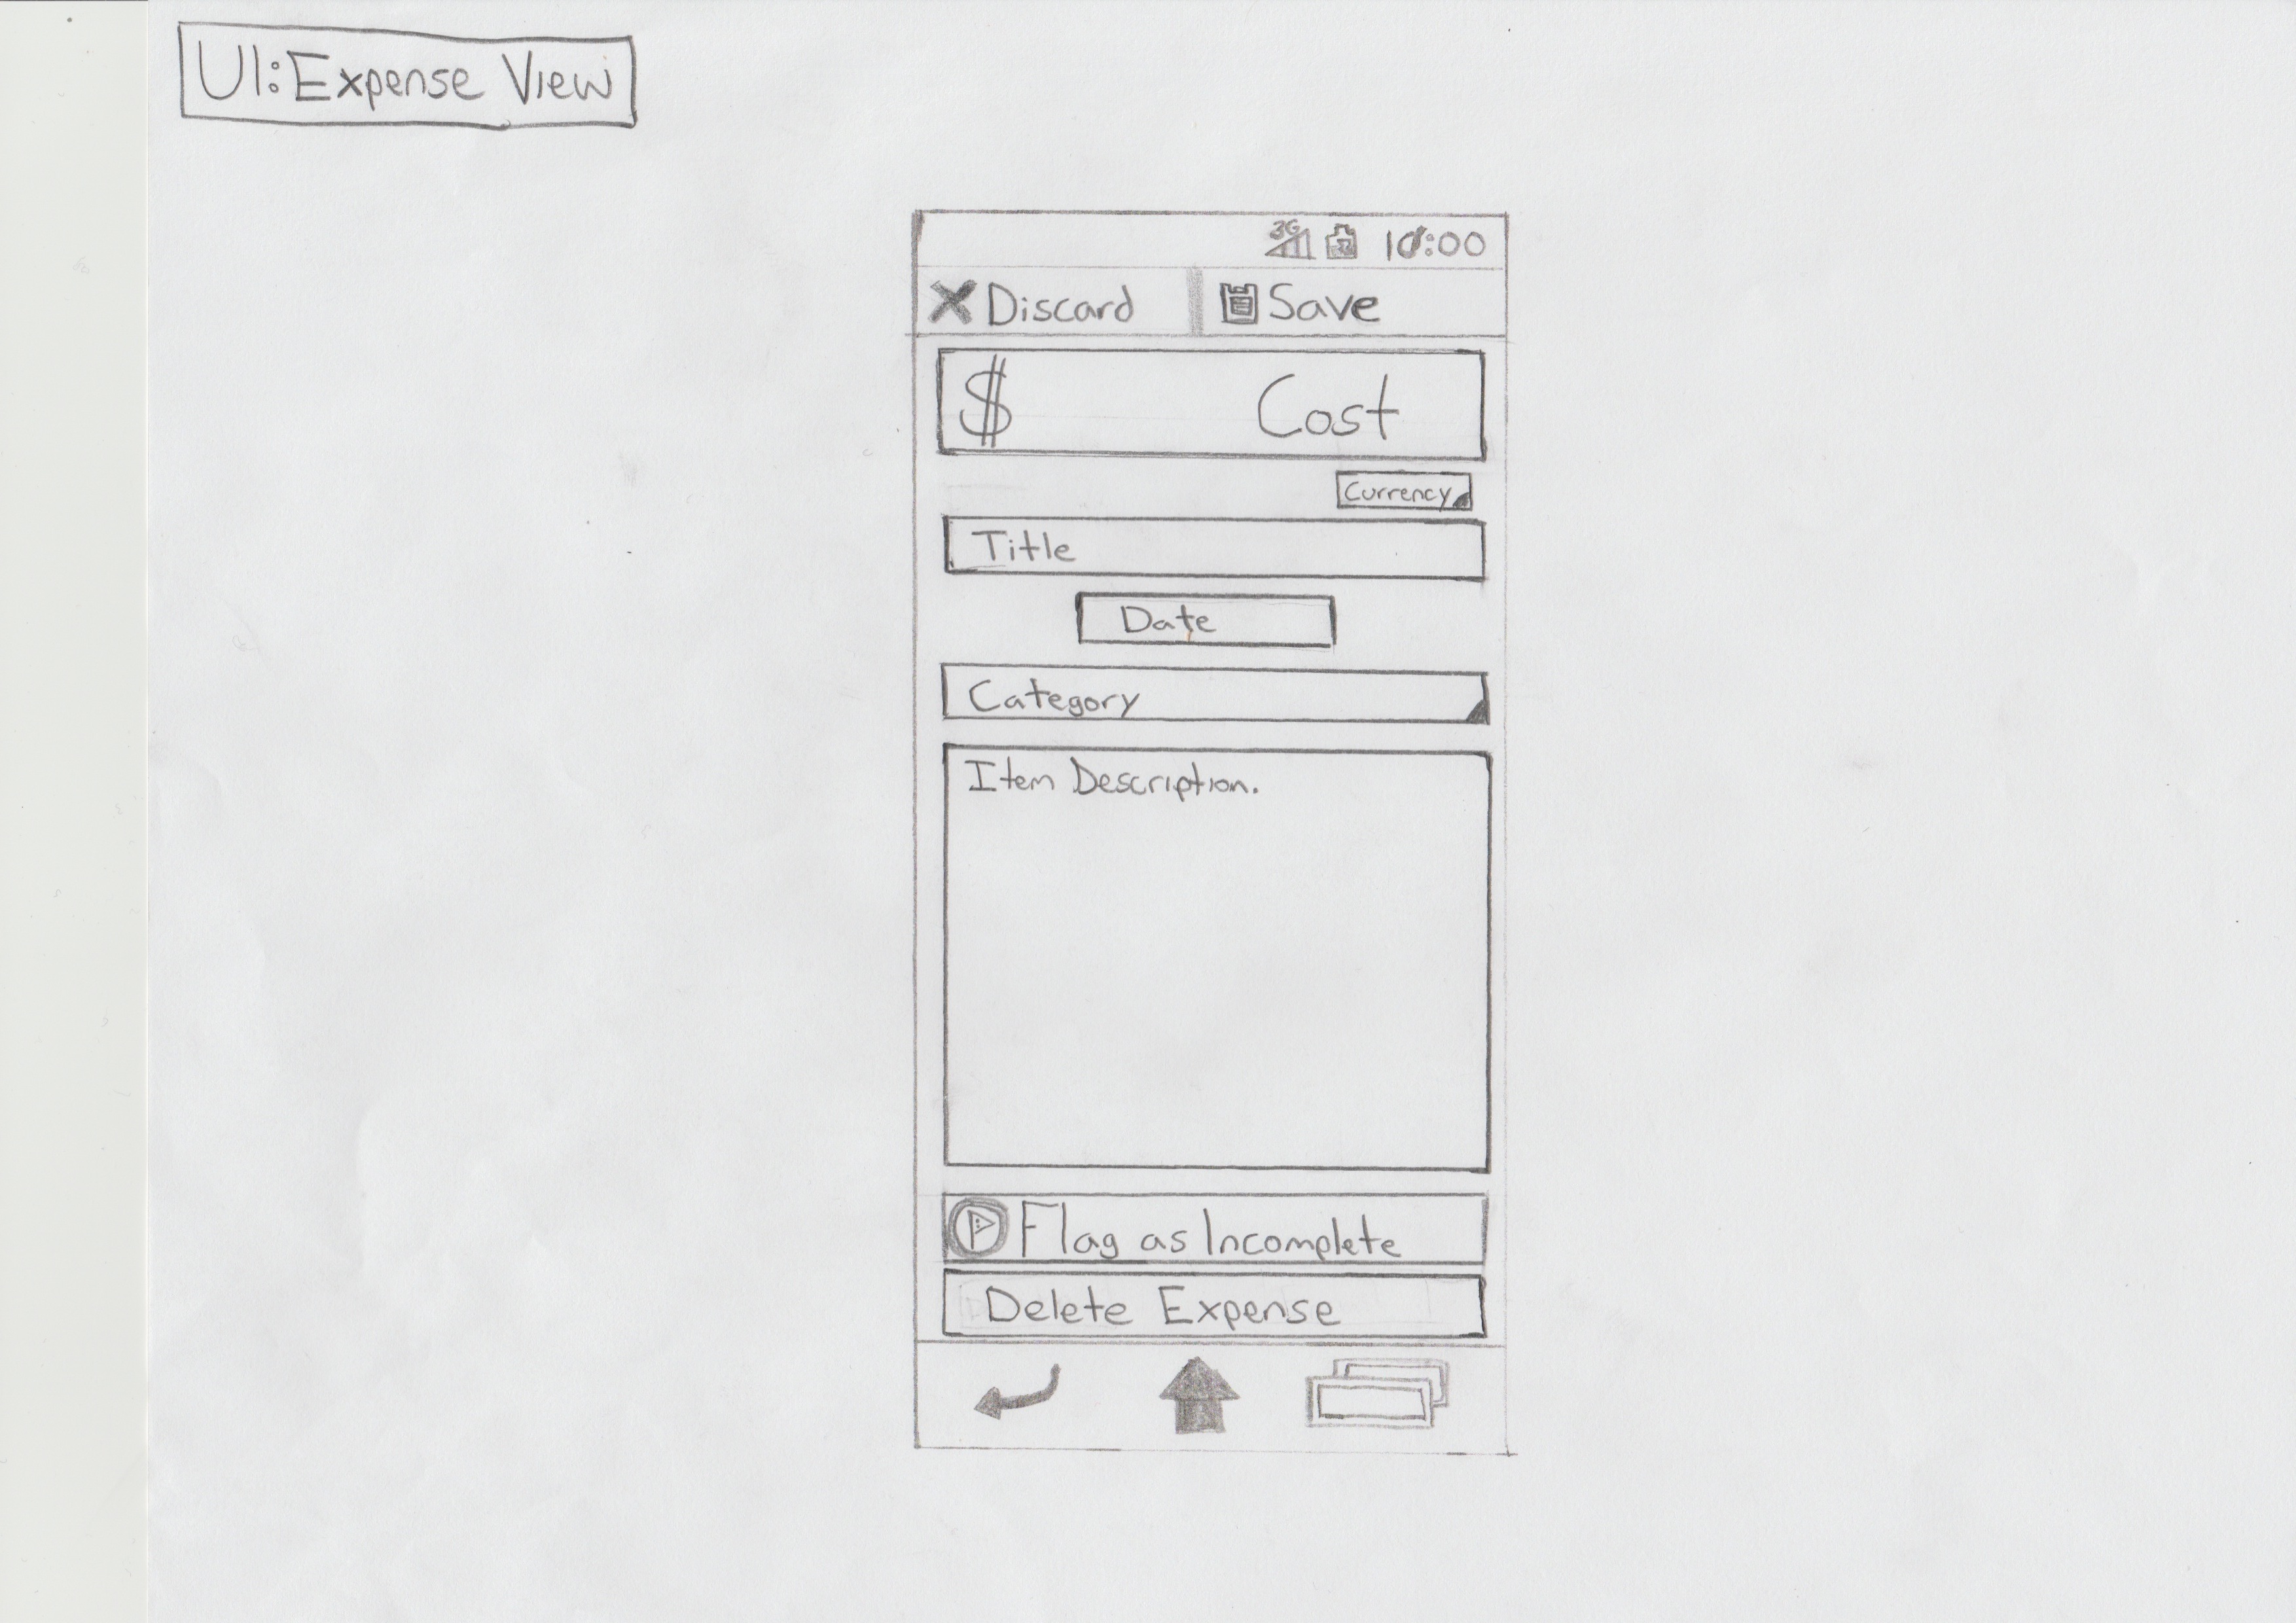 UI: Expense View
3G 10:00
Discard Save
$ Cost
Currency
Title
Date
Category
Item Description.
Flag as Incomplete
Delete Expense